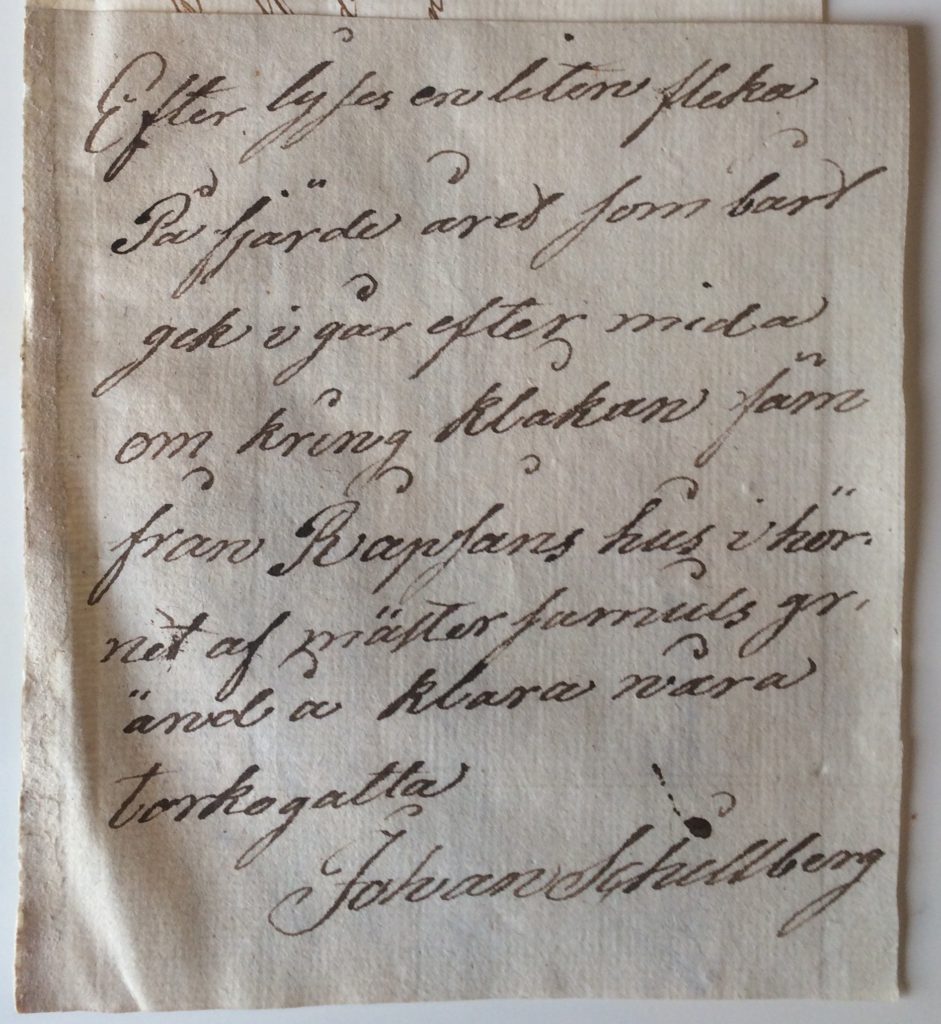 Efter lyses en liten fleka
På fjärde året som bårt
gek i går efter mida
om kring klåkan fäm
från Rapsans hus i hör-
net af mäster samuls gr-
änd å klara nåra
torkogatta
Johan Schullberg